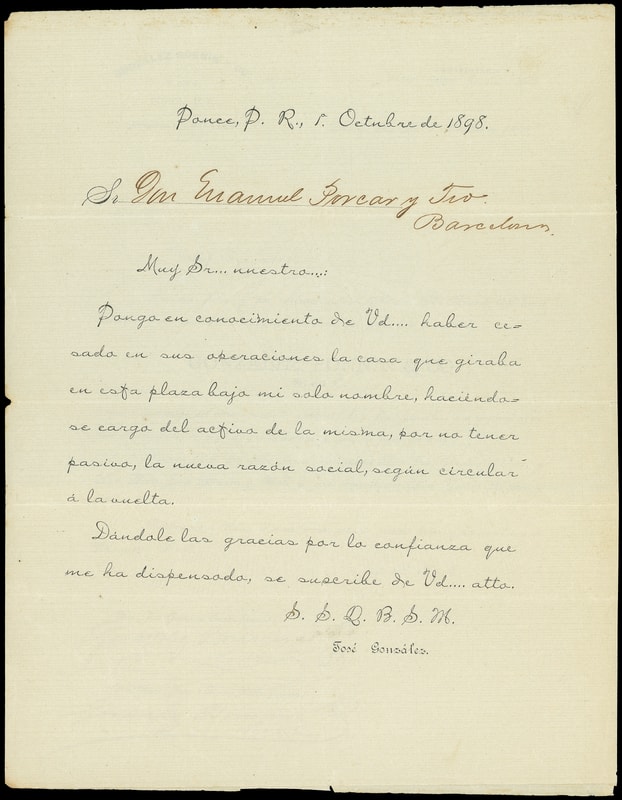 Ponce, P. R., 1º Octubre de 1898.
Sr Don Manuel Porcar y Tio.
Barcelona.
Muy Sr... nuestro...:
Pongo en conocimiento de Vd.... haber ce=
sado en sus operaciones la casa que giraba
en esta plaza bajo mi solo nombre, haciéndo=
se cargo del activo de la misma, por no tener
pasivo, la nueva razón social, según circular
á la vuelta.
Dándole las gracias por la confianza que
me ha dispensado, se suscribe de Vd.... atto.
S. S. Q. B. S. M.
José González.